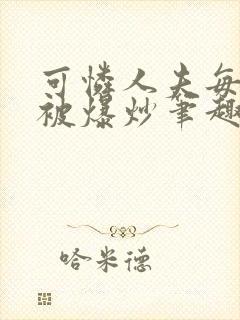 可怜人夫每
被爆炒笔趣
哈米德